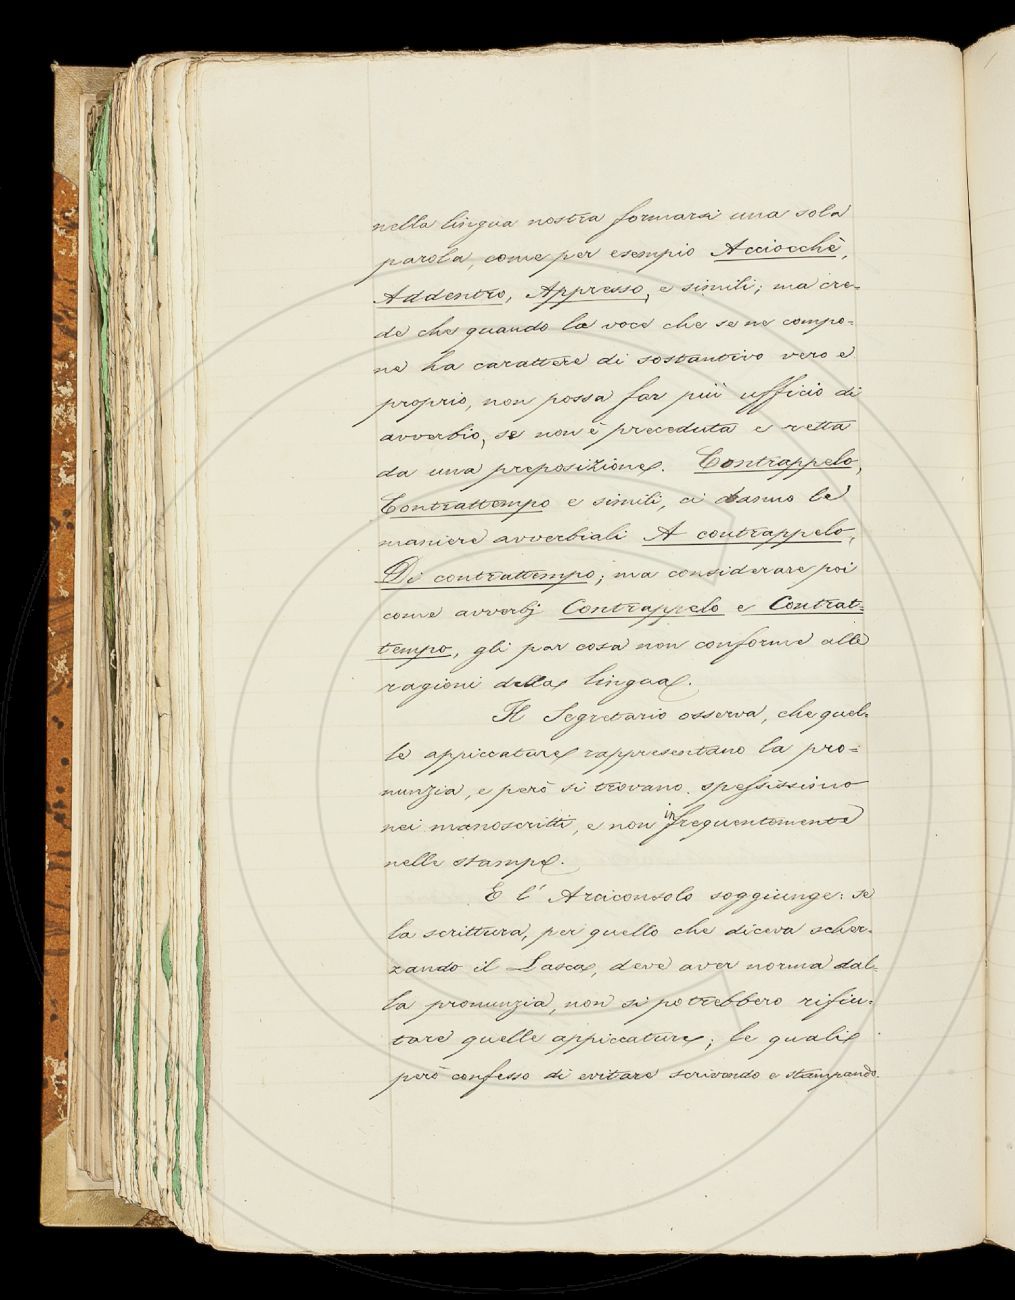 nella lingua nostra formarsi una sola
parola, come per esempio Acciocchè,
Addentro, Appresso, e simili; ma cre-
de che quando la voce che se ne compo=
ne ha carattere di sostantivo vero e
proprio, non possa far più ufficio di
avverbio, se non è preceduta e retta
da una preposizione. Contrappelo,
Contrattempo e simili, ci danno le
maniere avverbiali A contrappelo,
Di contrattempo; ma considerare poi
come avverbj Contrappelo e Contrat=
tempo, gli par cosa non conforme alle
ragioni della lingua.
Il Segretario osserva, che quel-
le appiccature rappresentano la pro=
nunzia, e però si trovano spessissimo
nei manoscritti, e non infrequentemente
nelle stampe.
E l'Arciconsolo soggiunge: se
la scrittura, per quello che diceva scher-
zando il Lasca, deve aver norma dal-
la pronunzia, non si potrebbero rifiu-
tare quelle appiccature; le quali
però confesso di evitare scrivendo e stampando.